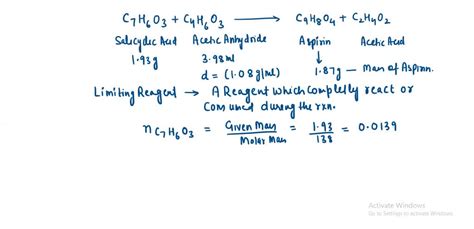 C7H6O3 + C4H6O3 ⟶ C9H8O4 + C2H4O2
Salicylic Acid Acetic Anhydride Aspirin Acetic Acid
1.93g 3.98ml ↓
d = (1.08g/ml) 1.87g — Mass of Aspirin.
Limiting Reagent → A Reagent which completly react or
Consumed during the rxn.
nC7H6O3 = Given Mass / Molar Mass = 1.93 / 138 = 0.0139
Activate Windows
Go to Settings to activate Windows